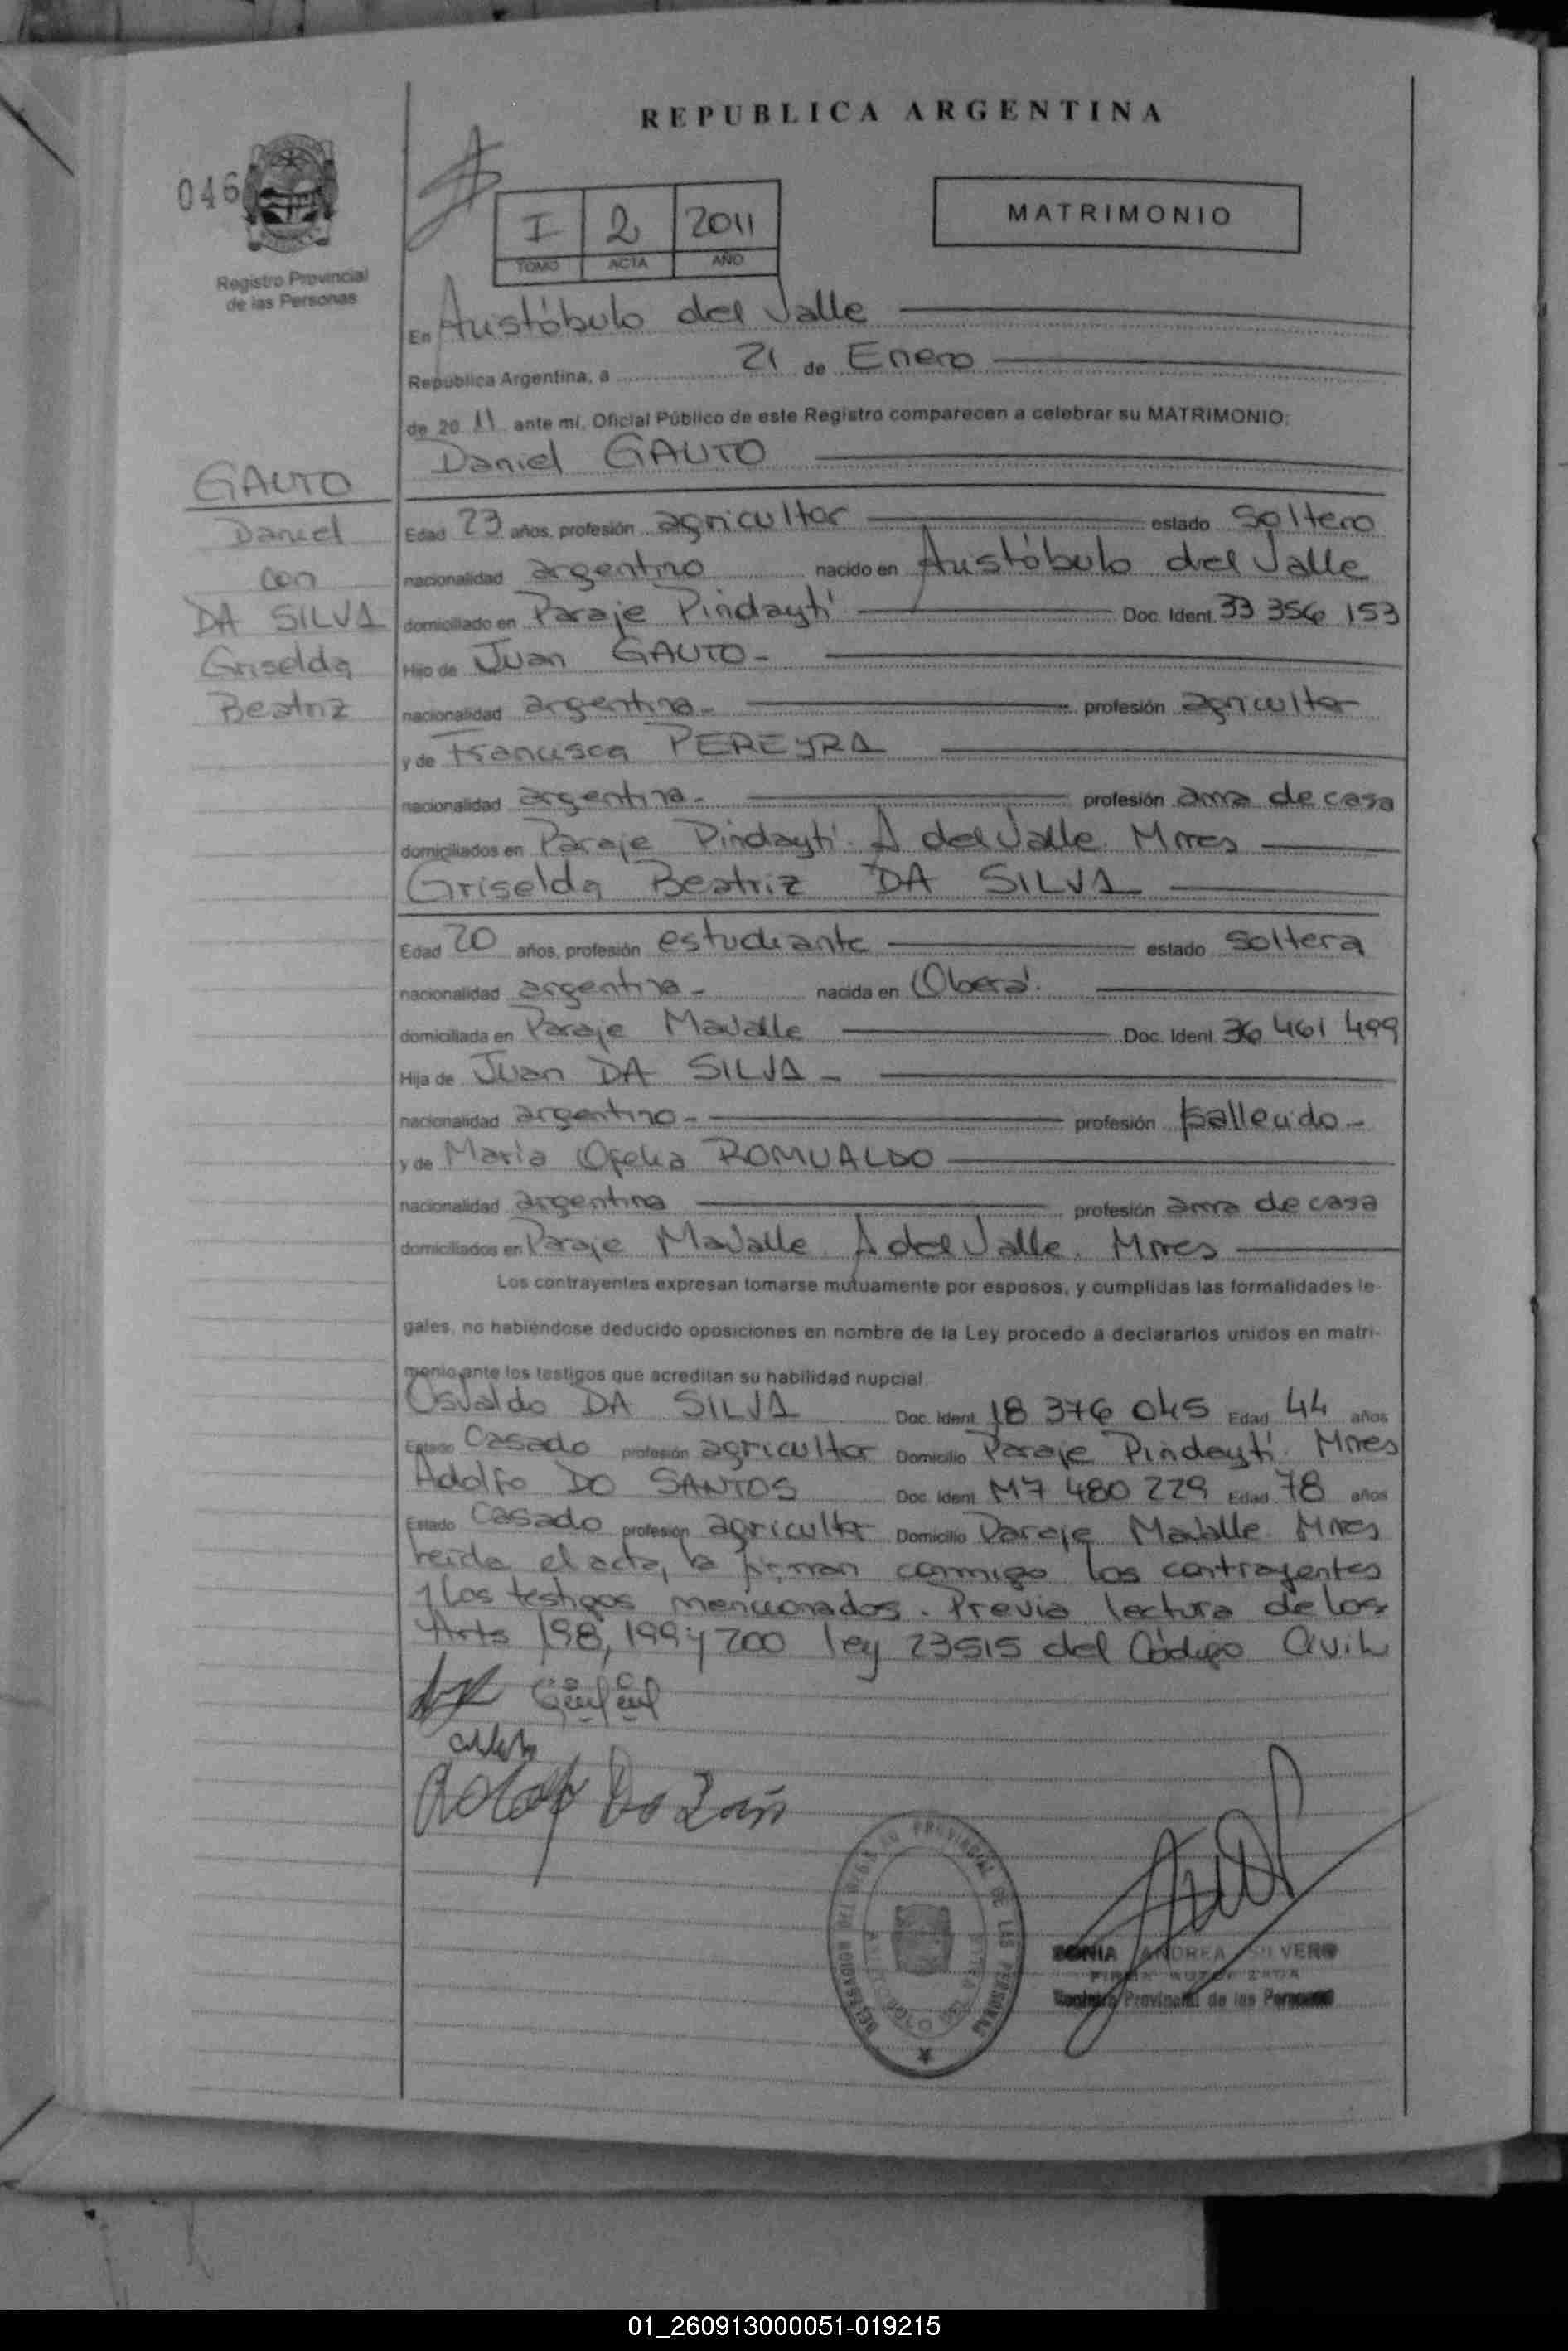 REPUBLICA ARGENTINA
046
Registro Provincial
de las Personas
I 2 2011
TOMO ACTA AÑO
MATRIMONIO
En Aristóbulo del Valle
Republica Argentina, a 21 de Enero
de 20 11 ante mí, Oficial Público de este Registro comparecen a celebrar su MATRIMONIO:
Daniel GAUTO
GAUTO
Daniel
con
DA SILVA
Griselda
Beatriz
Edad 23 años, profesión agricultor estado soltero
nacionalidad argentino nacido en Aristóbulo del Valle
domiciliado en Paraje Pindaytí Doc. Ident. 33 356 153
Hijo de Juan GAUTO-
nacionalidad argentina- profesión agricultor
y de Francisca PEREYRA
nacionalidad argentina- profesión ama de casa
domiciliados en Paraje Pindaytí. A del Valle Mnes
Griselda Beatriz DA SILVA
Edad 20 años, profesión estudiante estado soltera
nacionalidad argentina- nacida en Oberá.
domiciliada en Paraje Mavalle Doc. Ident. 36 461 499
Hija de Juan DA SILVA-
nacionalidad argentino- profesión fallecido-
y de María Ofelia ROMUALDO
nacionalidad argentina profesión ama de casa
domiciliados en Paraje Mavalle A del Valle. Mnes
Los contrayentes expresan tomarse mutuamente por esposos, y cumplidas las formalidades le-
gales, no habiéndose deducido oposiciones en nombre de la Ley procedo a declararlos unidos en matri-
monio ante los testigos que acreditan su habilidad nupcial.
Osvaldo DA SILVA Doc. Ident. 18 376 045 Edad 44 años
Estado Casado profesión agricultor Domicilio Paraje Pindaytí. Mnes
Adolfo DO SANTOS Doc. Ident. M7 480 229 Edad 78 años
Estado Casado profesión agricultor Domicilio Paraje Mavalle Mnes
Leída el acta, la firman conmigo los contrayentes
y los testigos mencionados. Previa lectura de los
Arts 198, 199 y 200 ley 23515 del Código Civil
PROVINCIAL DE LAS PERSONAS
DELEGACION
SONIA ANDREA SILVERO
FIRMA AUTORIZADA
Registro Provincial de las Personas
01_260913000051-019215